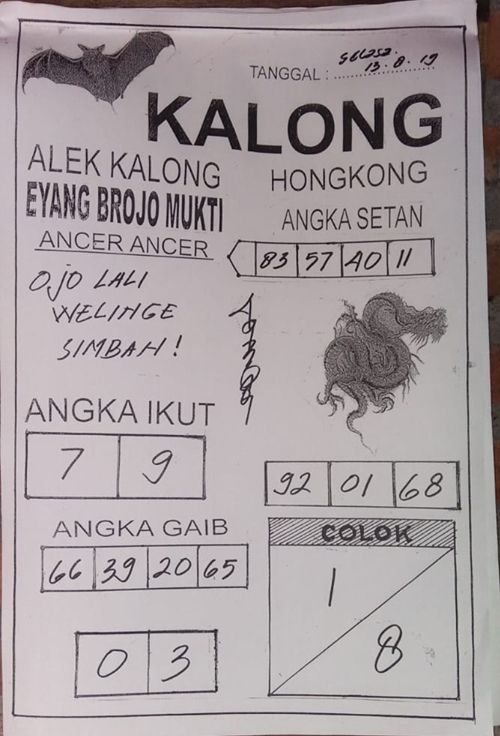 SELASA.
TANGGAL : 13 . 8 . 19
KALONG
ALEK KALONG
EYANG BROJO MUKTI
ANCER ANCER
OJO LALI
WELINGE
SIMBAH !
HONGKONG
ANGKA SETAN
83 57 40 11
ANGKA IKUT
7 9
92 01 68
ANGKA GAIB
66 39 20 65
COLOK
1
8
0 3